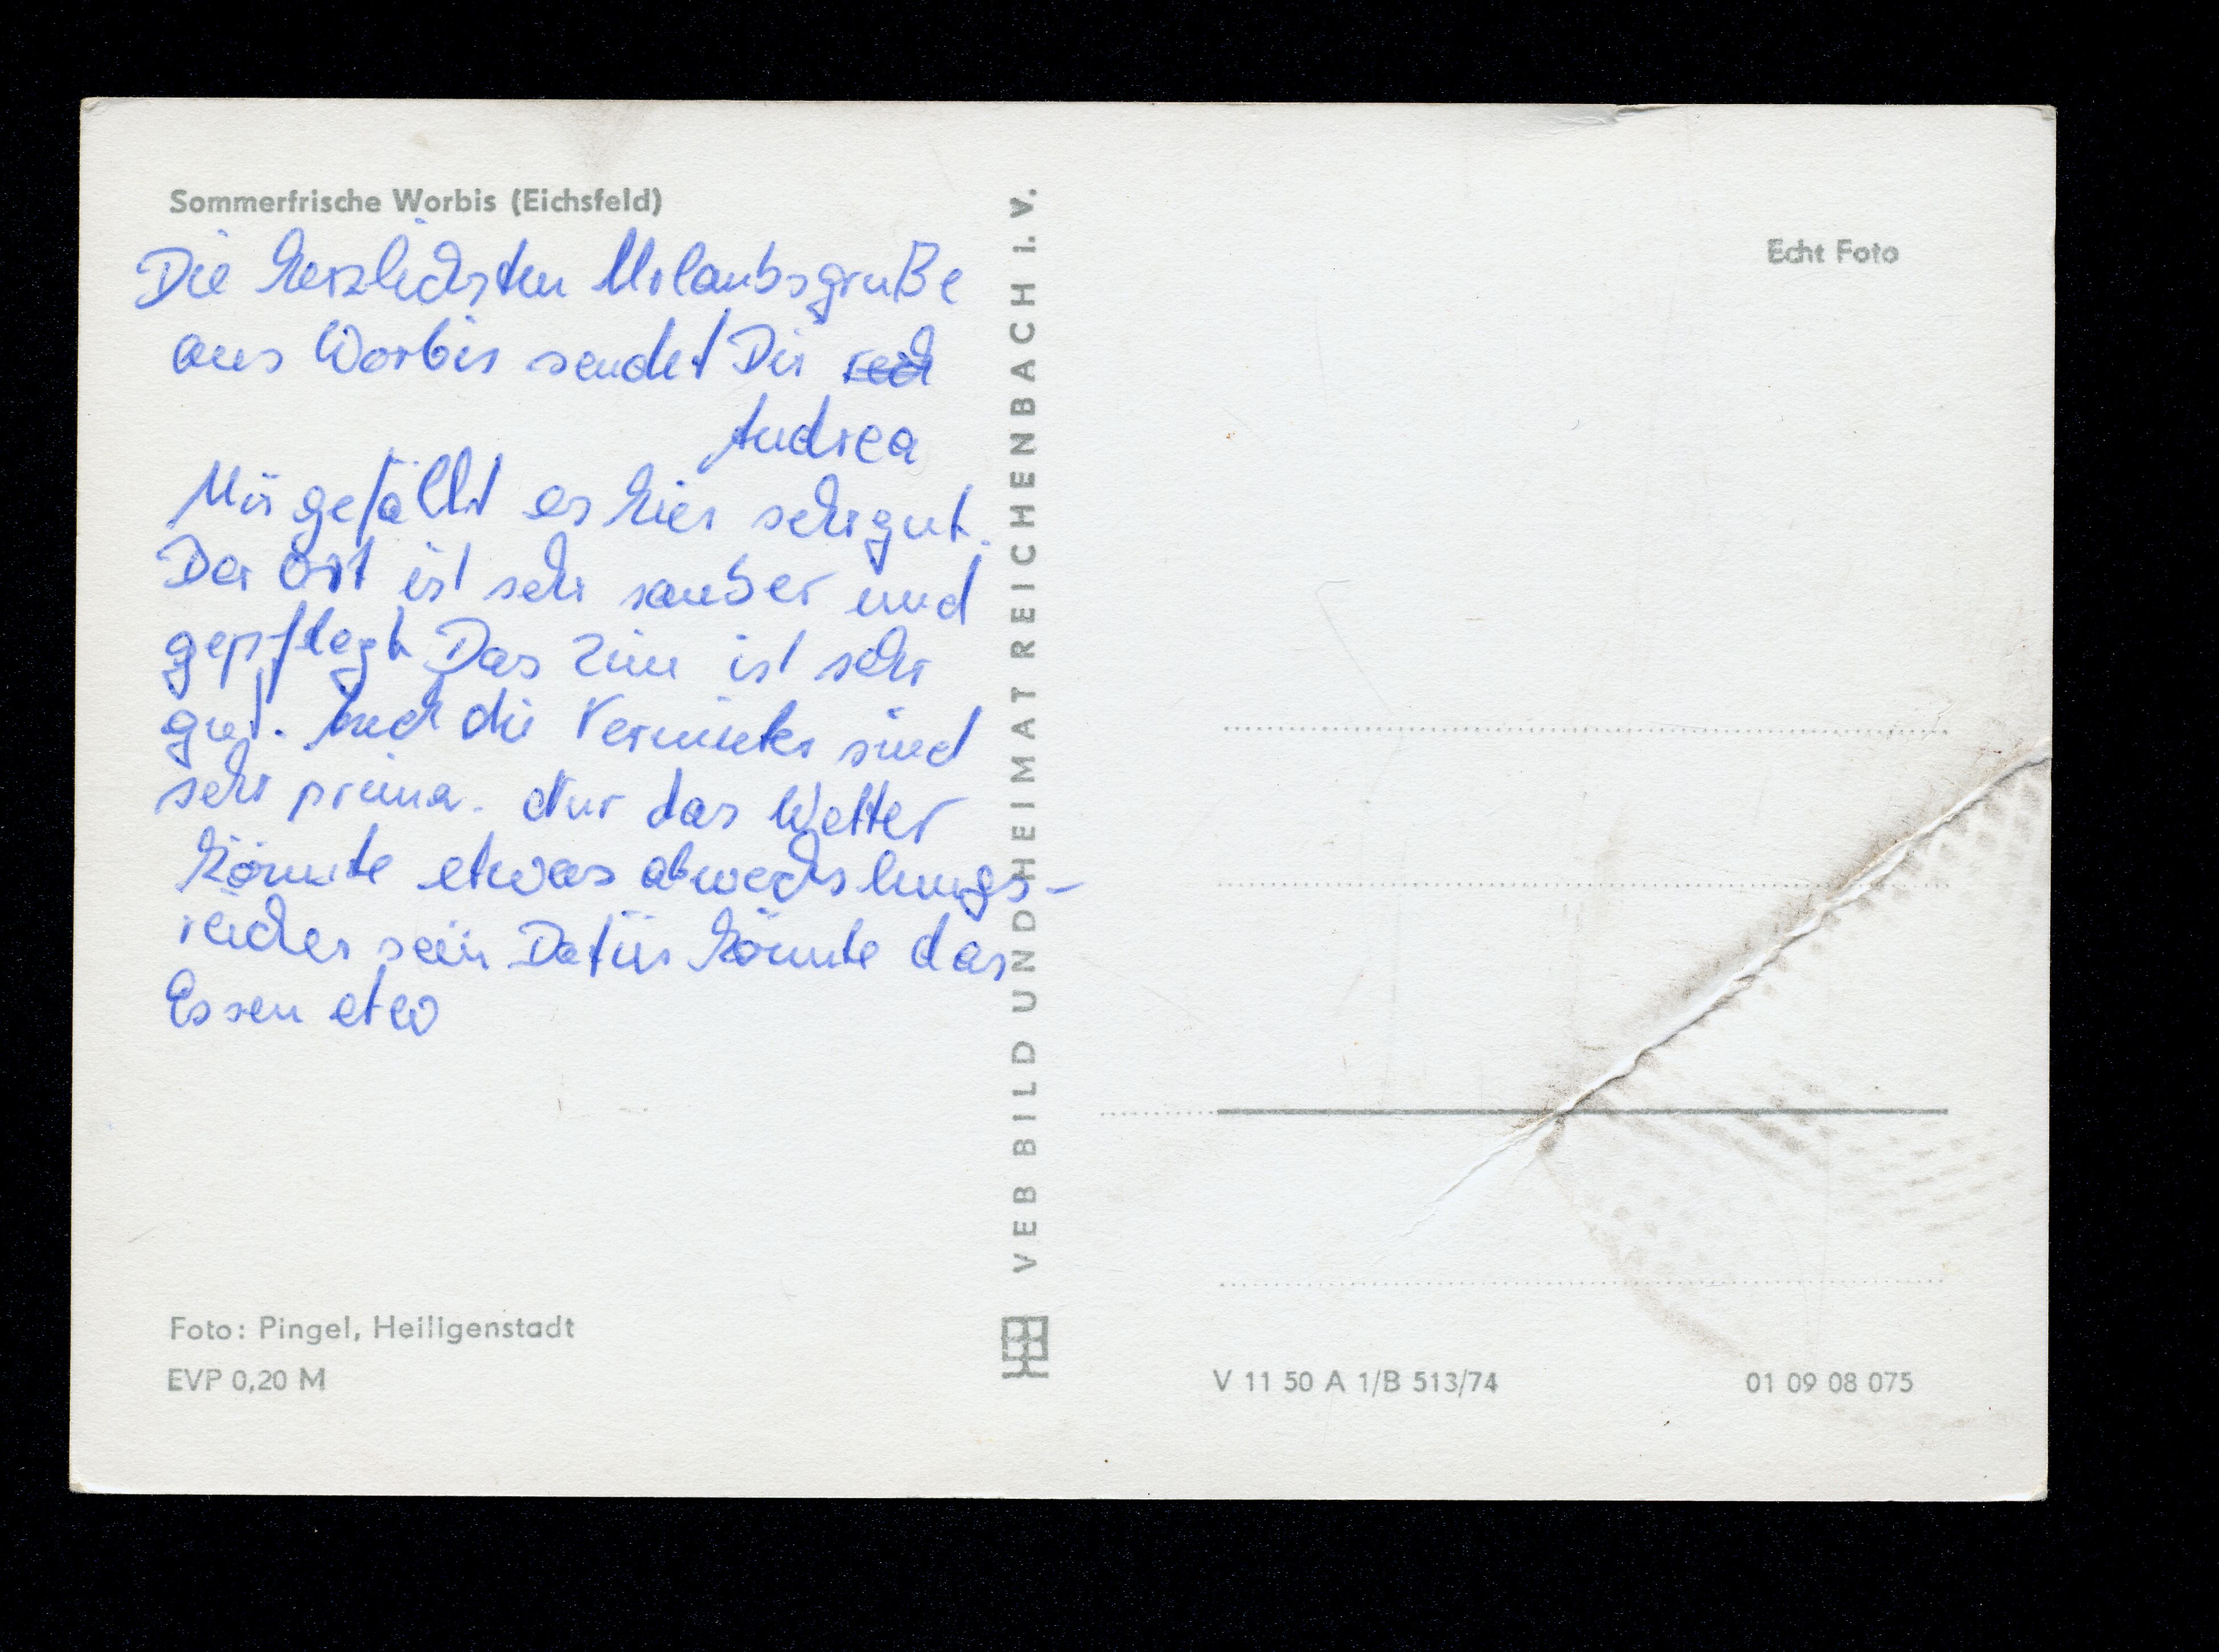 Sommerfrische Worbis (Eichsfeld)
Die herzlichsten Urlaubsgruße
aus Worbis sendet Dir
Andrea
Mir gefällt es hier sehr gut.
Der Ort ist sehr sauber und
gepflegt Das Zim ist sehr
gut. Auch die Vermieter sind
sehr prima. Nur das Wetter
könnte etwas abwechslungs-
reicher sein Dafür könnte das
Essen etw
Foto: Pingel, Heiligenstadt
EVP 0,20 M
VEB BILD UND HEIMAT REICHENBACH I. V.
Echt Foto
V 11 50 A 1/B 513/74
01 09 08 075